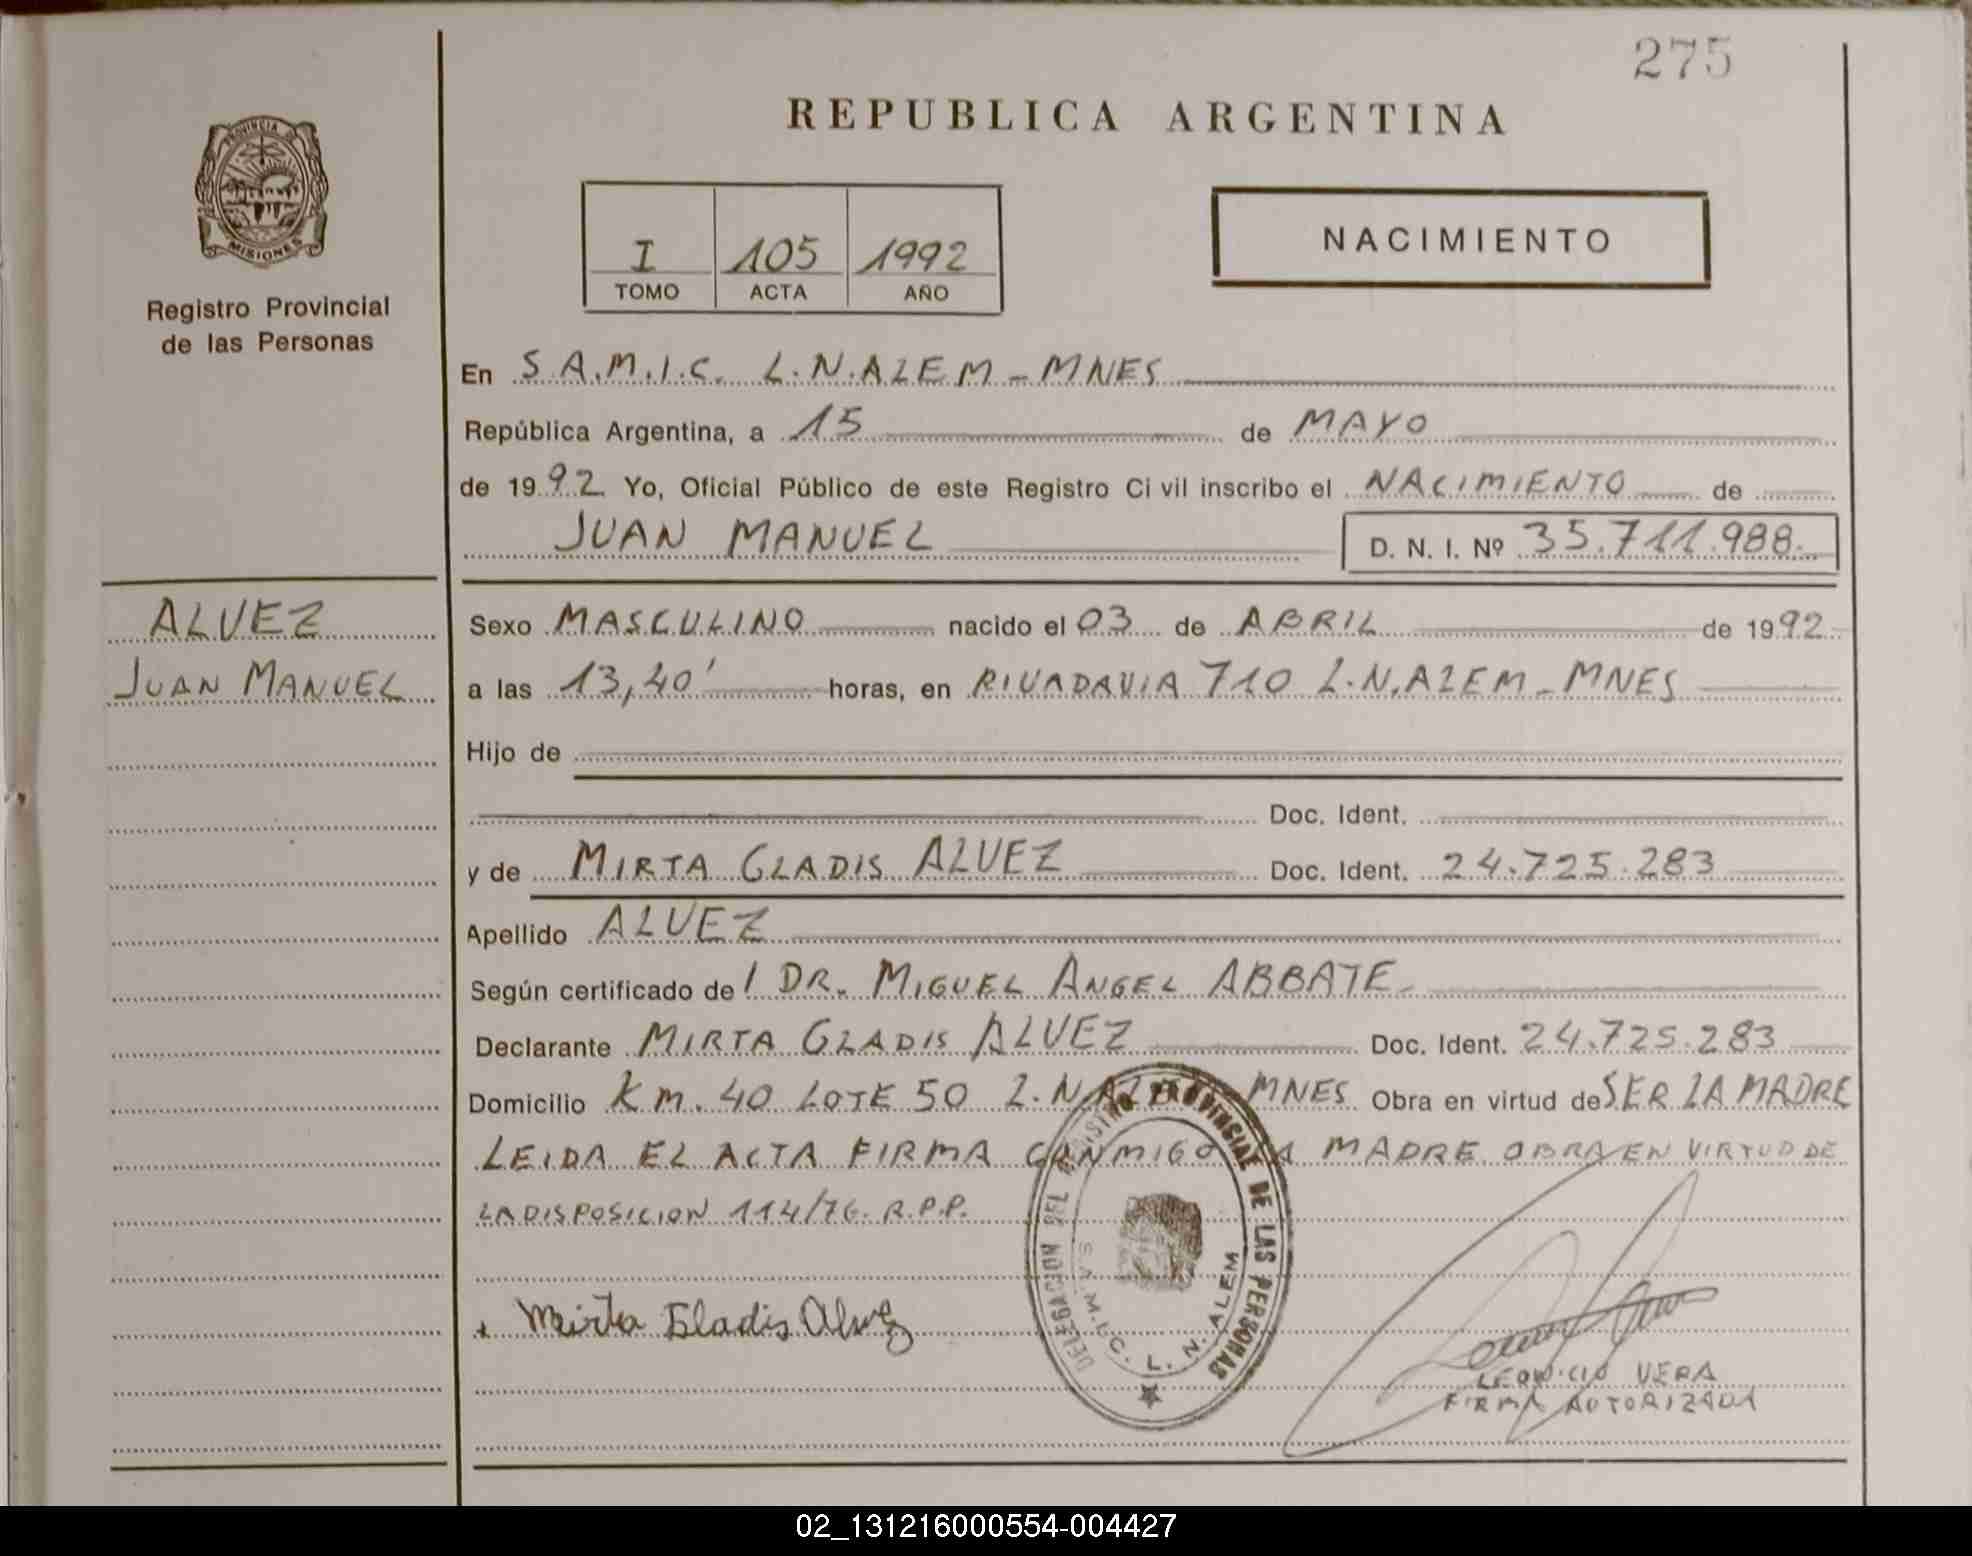 275
REPUBLICA ARGENTINA
PROVINCIA DE
MISIONES
Registro Provincial
de las Personas
I 105 1992
TOMO ACTA AÑO
NACIMIENTO
En S.A.M.I.C. L.N.ALEM - MNES
República Argentina, a 15 de MAYO
de 1992 Yo, Oficial Público de este Registro Ci vil inscribo el NACIMIENTO de
JUAN MANUEL D. N. I. Nº 35.711.988.
ALVEZ
JUAN MANUEL
Sexo MASCULINO nacido el 03 de ABRIL de 1992
a las 13,40' horas, en RIVADAVIA 710 L.N.ALEM - MNES
Hijo de
Doc. Ident.
y de MIRTA GLADIS ALVEZ Doc. Ident. 24.725.283
Apellido ALVEZ
Según certificado de l DR. MIGUEL ANGEL ABBATE.
Declarante MIRTA GLADIS ALVEZ Doc. Ident. 24.725.283
Domicilio Km. 40 LOTE 50 L.N.ALEM MNES Obra en virtud de SER LA MADRE
LEIDA EL ACTA FIRMA CONMIGO LA MADRE OBRA EN VIRTUD DE
LA DISPOSICION 114/76. R.P.P.
DELEGACION DEL REGISTRO PROVINCIAL DE LAS PERSONAS
S.A.M.I.C. L. N. ALEM
Mirta Gladis Alvez
LEONICIO VERA
FIRMA AUTORIZADA
02_131216000554-004427